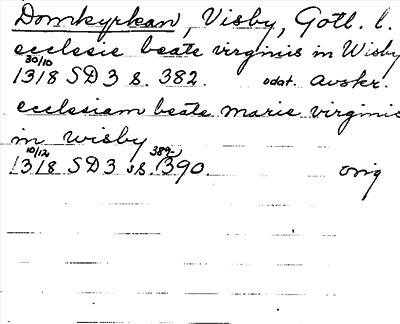 Domkyrkan, Visby, Gotl. l.
ecclesie beate virginis in Wisby
30/10
1318 SD 3 s. 382. odat. avskr.
ecclesiam beate marie virginis
in wisby
10/12 389-
1318 SD 3 s. 390. orig